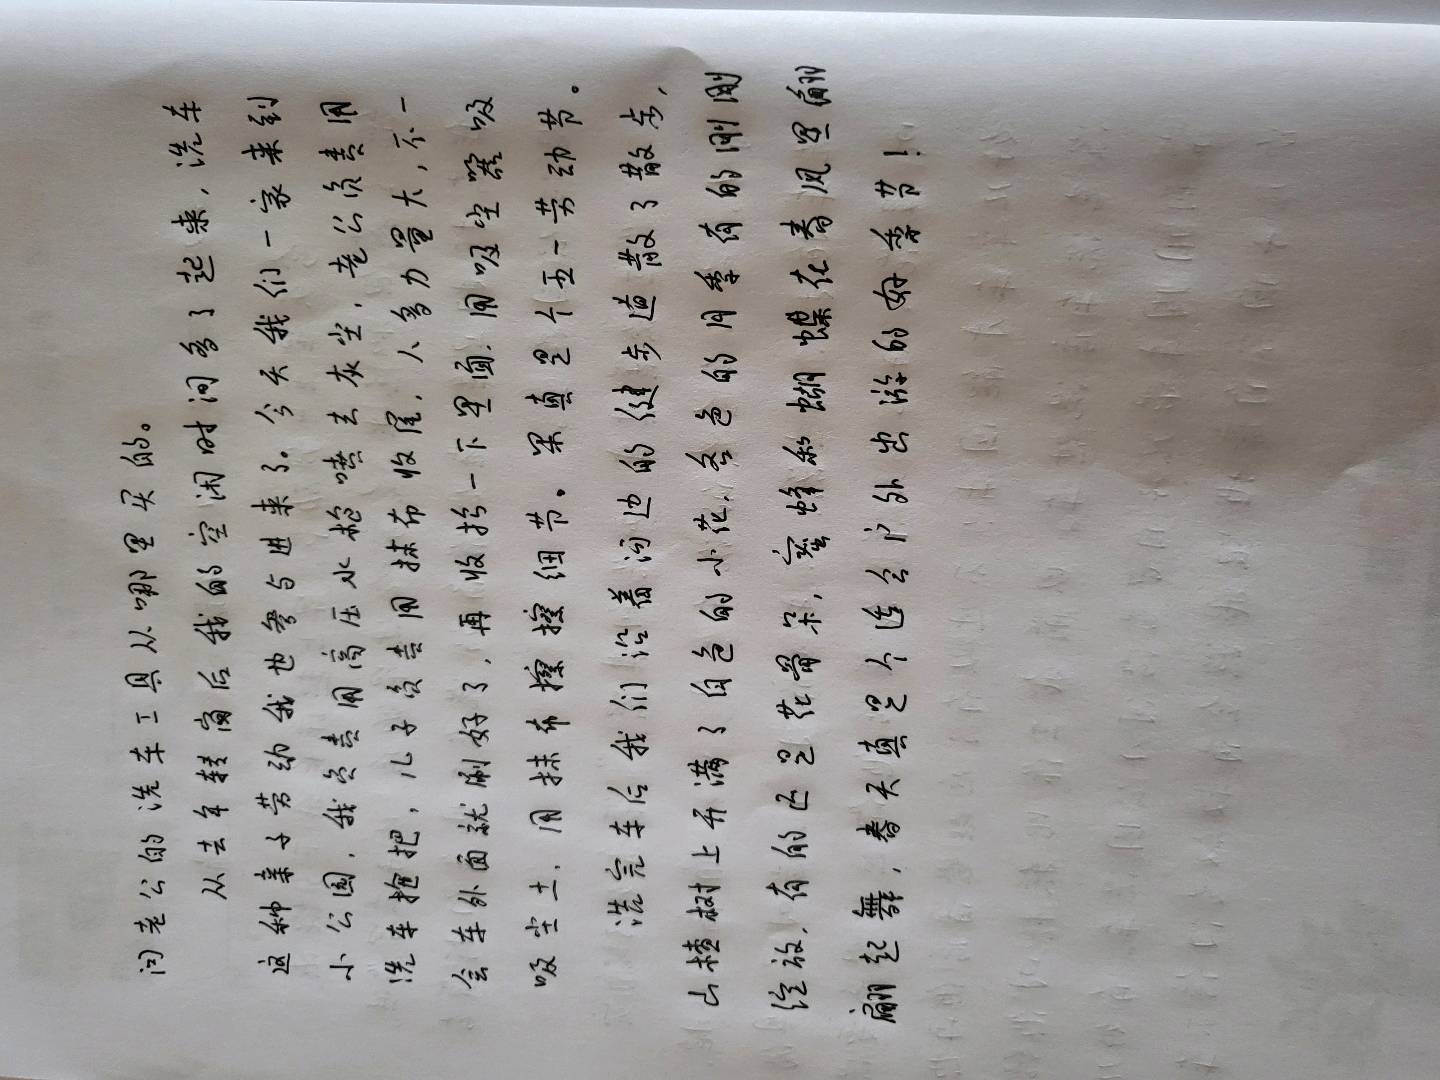 问老公的洗车工具从哪里买的。
从去年转岗后我的空闲时间多了起来，洗车
这种亲子劳动我也参与进来了。今天我们一家来到
小公园，我负责用高压水枪喷去灰尘，老公负责用
洗车拖把，儿子负责用抹布收尾，人多力量大，不一
会车外面就刷好了，再收拾一下里面，用吸尘器吸
吸尘土，用抹布擦擦细节。果真是个五一劳动节。
洗完车后我们沿着河边的健步道散了散步，
山楂树上开满了白色的小花，各色的月季有的刚刚
绽放，有的还是花骨朵，蜜蜂和蝴蝶在春风里翩
翩起舞，春天真是个适合户外出游的好季节！